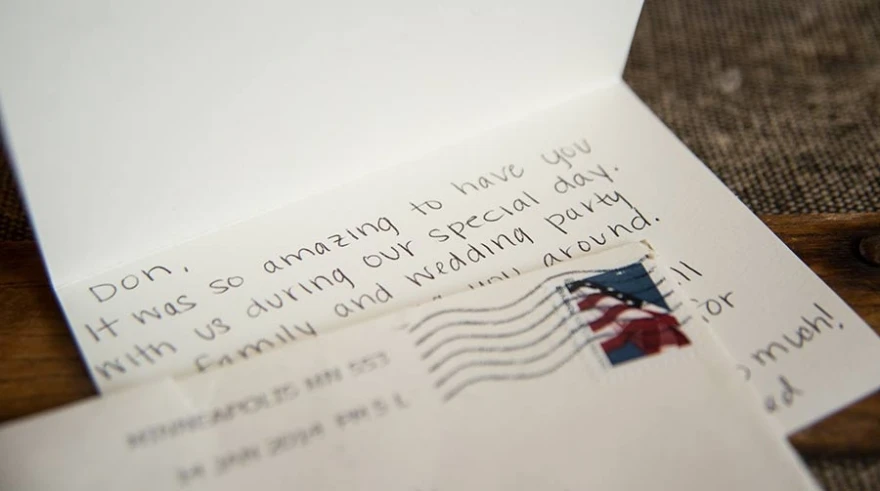 Don,
It was so amazing to have you
with us during our special day.
family and wedding party
you around.
much!
MINNEAPOLIS MN 553
JAN 2014 PM 5 L